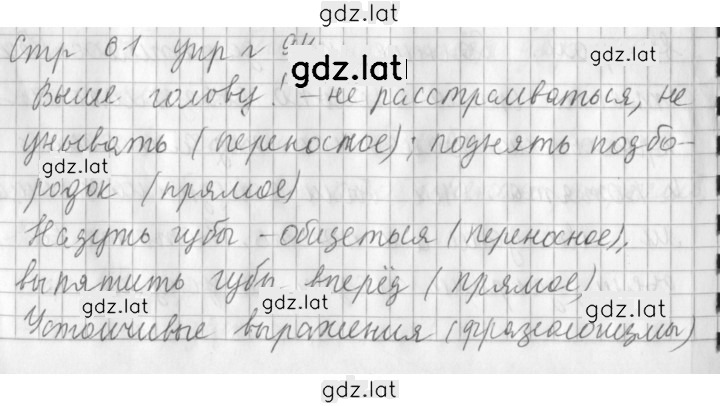 gdz.lat
Стр 61 упр
gdz.lat
gdz.lat
Выше голову! - не расстраиваться, не
унывать (переносное); поднять подбо-
gdz.lat
родок (прямое)
Надуть губы - обидеться (переносное),
выпятить губы вперёд (прямое)
gdz.lat gdz.lat gdz.lat
Устойчивые выражения (фразеологизмы)
gdz.lat